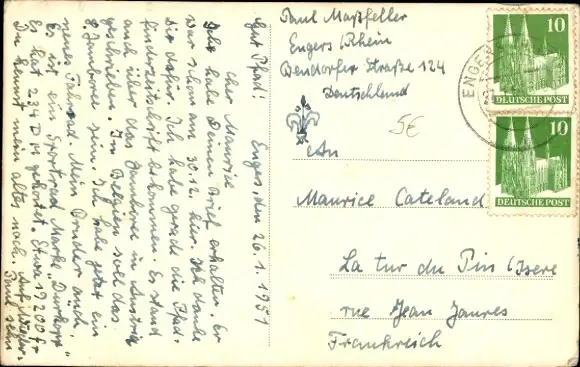 Gut Pfad! Engers, den 26.1.1951
Cher Maurice
Ich habe Deinen Brief erhalten. Er
war schon am 30.12. hier. Ich danke
Dir dafür. Ich habe gerade die Pfad-
finderzeitschrift bekommen. Es stand
auch über das Jamboree in Austria
geschrieben. In Belgien soll das
8. Jamboree sein. Ich habe jetzt ein
neues Fahrrad. Mein Bruder auch.
Es ist ein Sportrad Marke "Dürkopp"
Es hat 234 DM gekostet. Etwa 19200 fr
Du kennst mein altes noch. Auf
Paul
Paul Maßfeller
Engers/Rhein
Bendorfer Straße 124
Deutschland
5€
An
Maurice Cateland
La tur du Pin (Isere
rue Jean Jaures
Frankreich
10
DEUTSCHE POST
10
DEUTSCHE POST